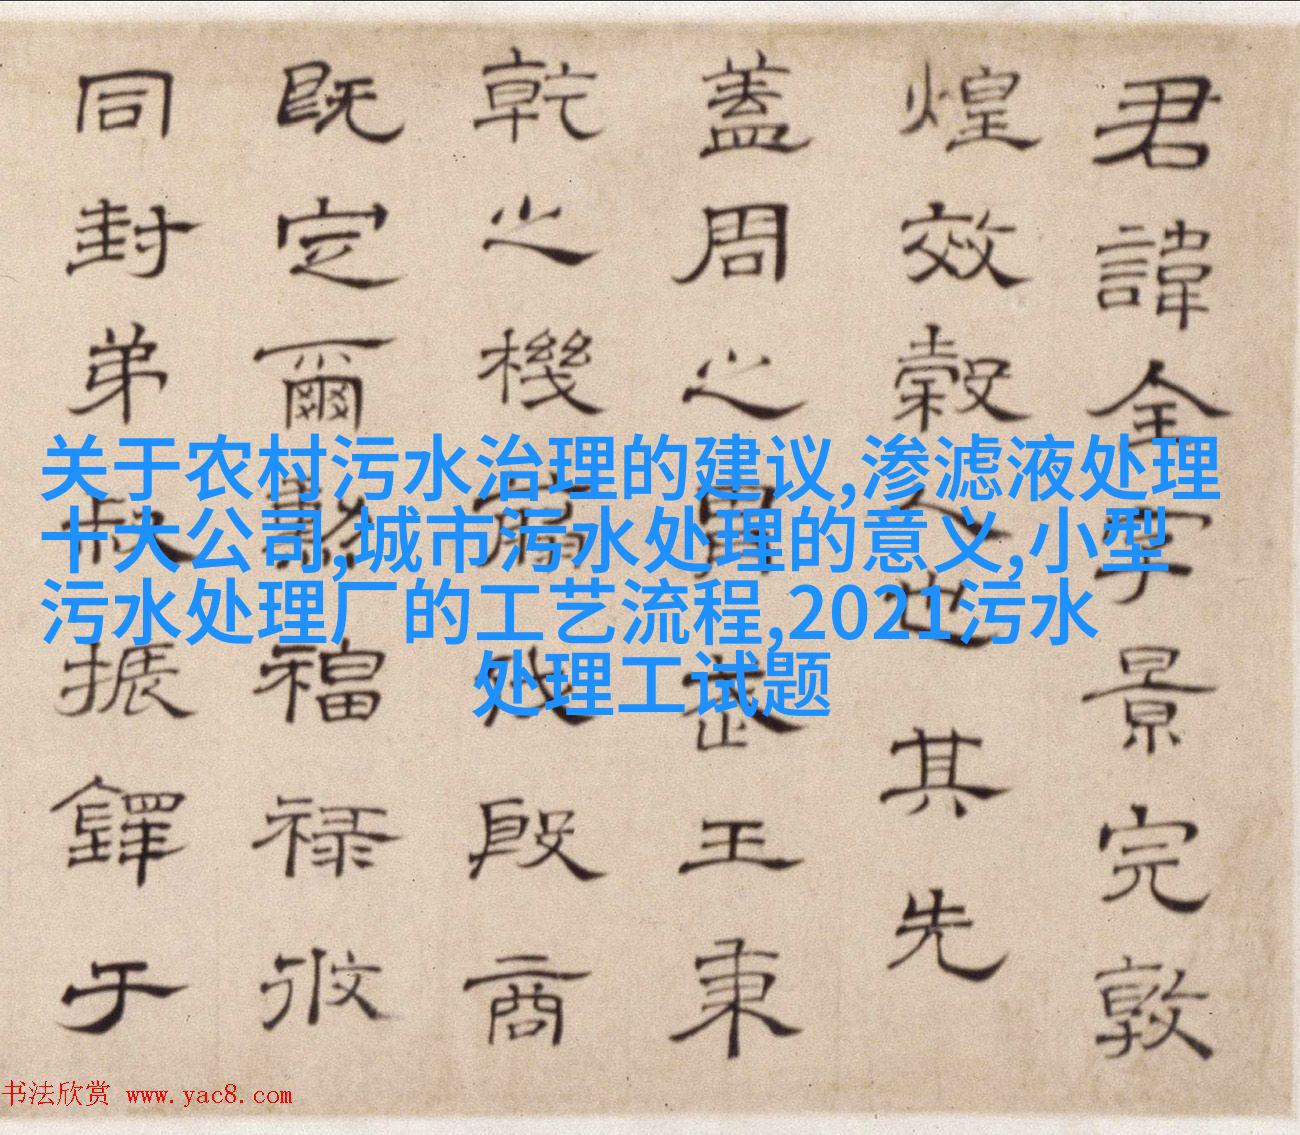 君諱全字景完敦
煌效穀人也其先
蓋周之胄武王秉
乾之機翦伐殷商
既定爾勳福祿攸
同封弟叔振鐸于
关于农村污水治理的建议,渗滤液处理
十大公司,城市污水处理的意义,小型
污水处理厂的工艺流程,2021污水
处理工试题
书法欣赏 www.yac8.com